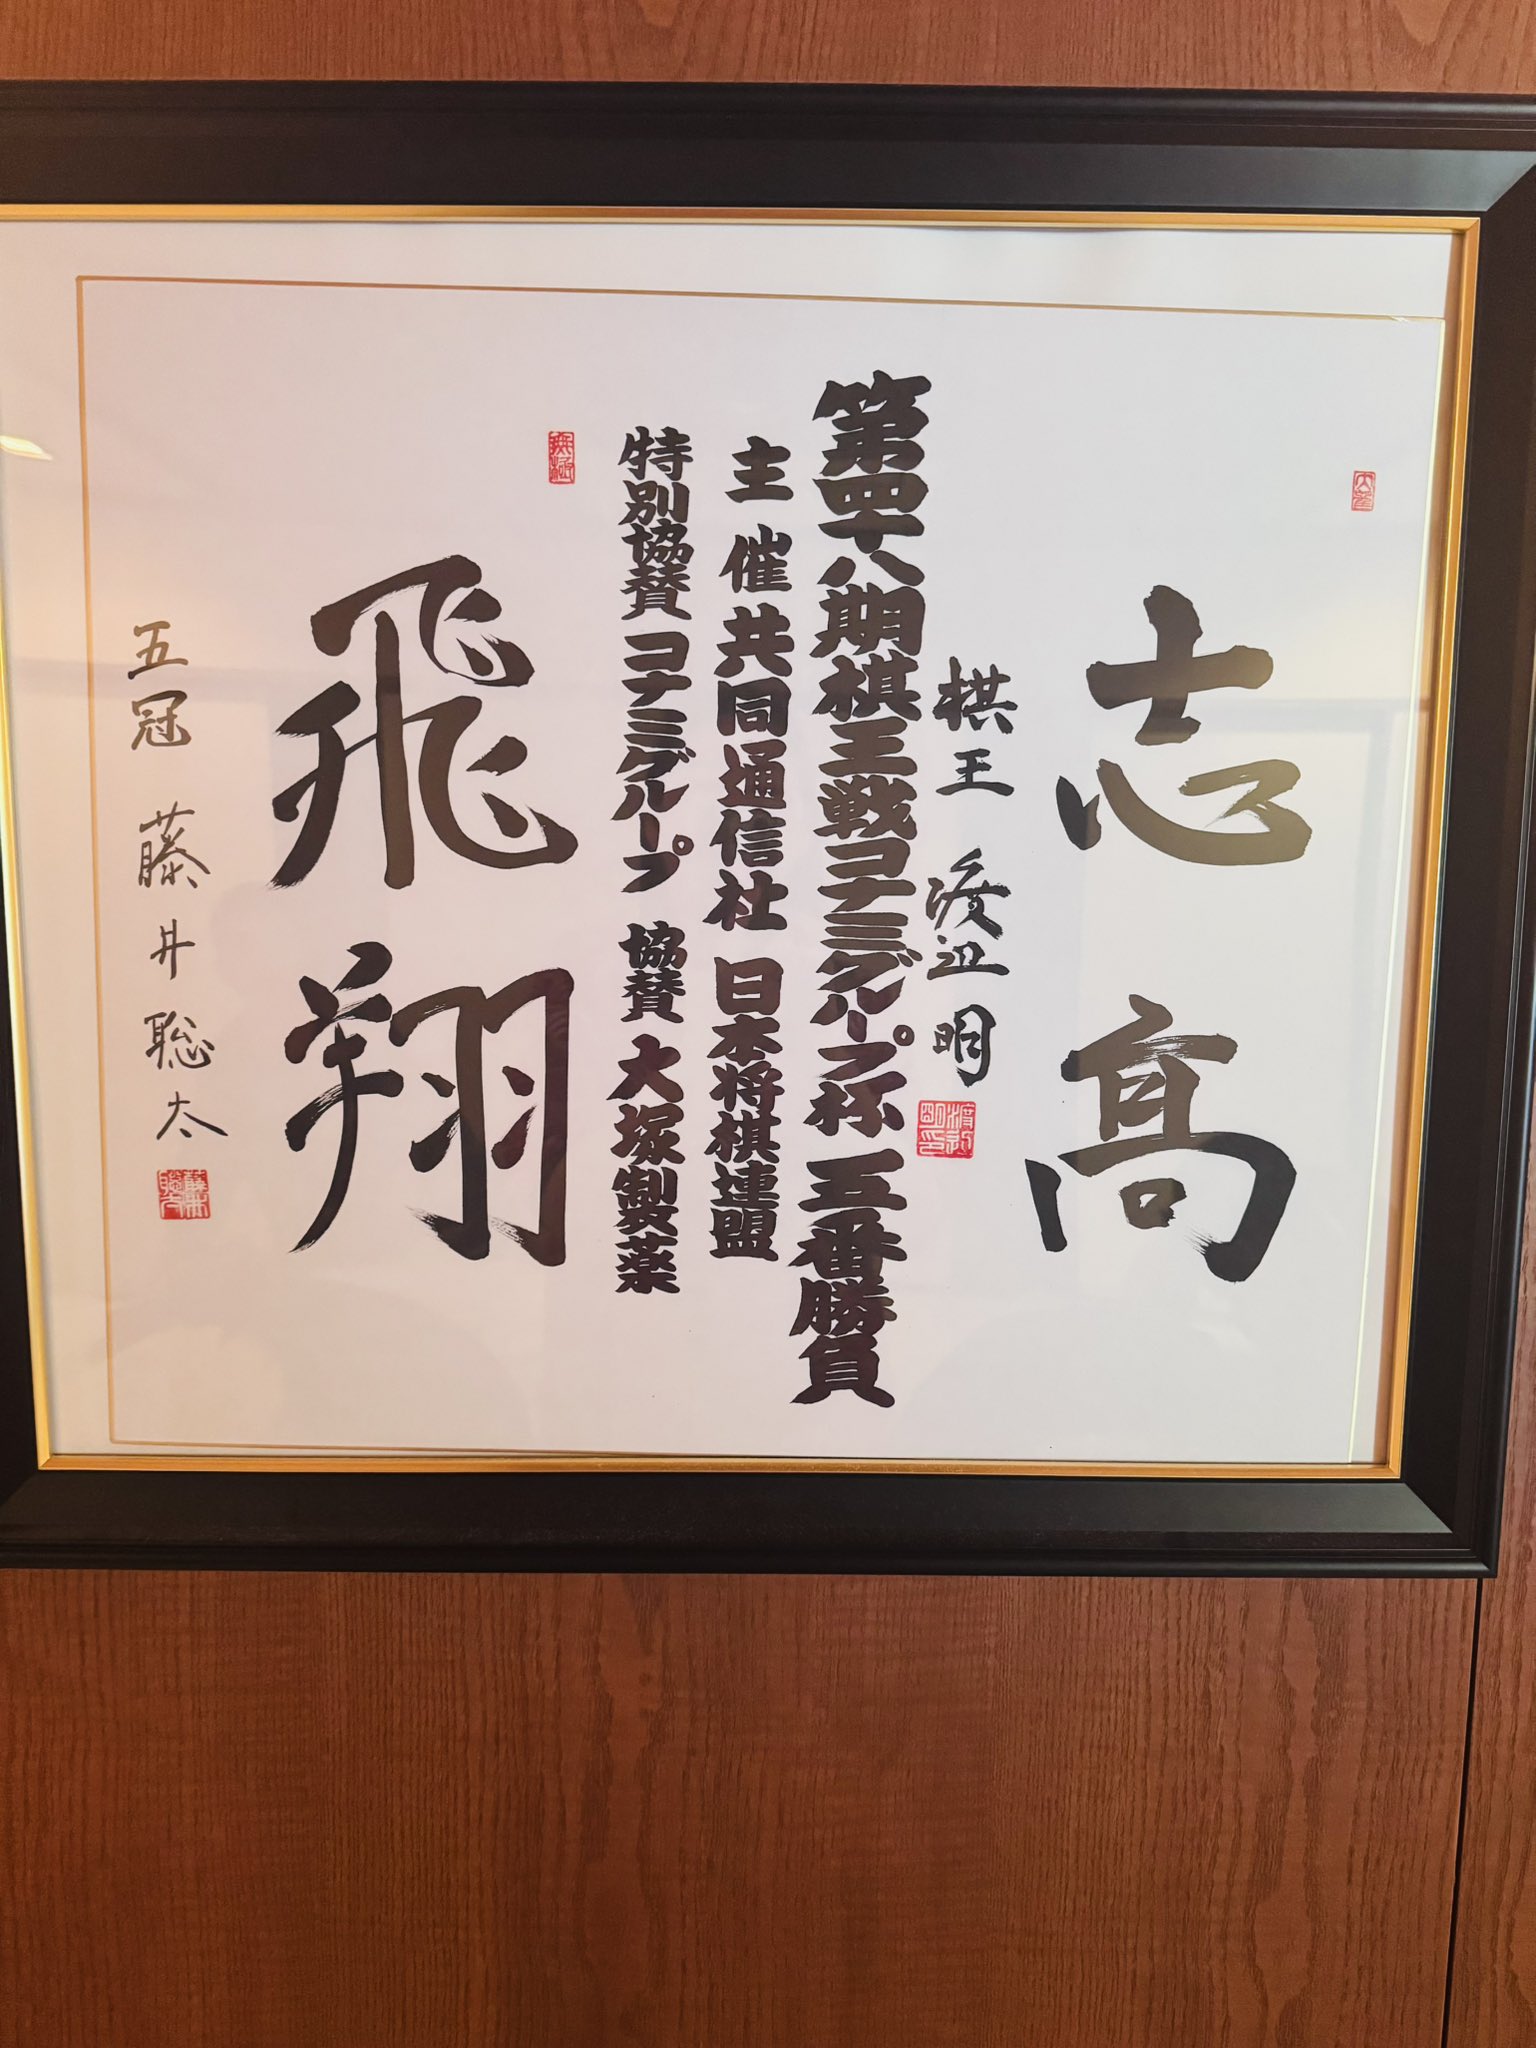 志高
棋王 渡辺明
第四十八期棋王戦コナミグループ杯 五番勝負
主催 共同通信社 日本将棋連盟
特別協賛 コナミグループ 協賛 大塚製薬
飛翔
五冠 藤井聡太